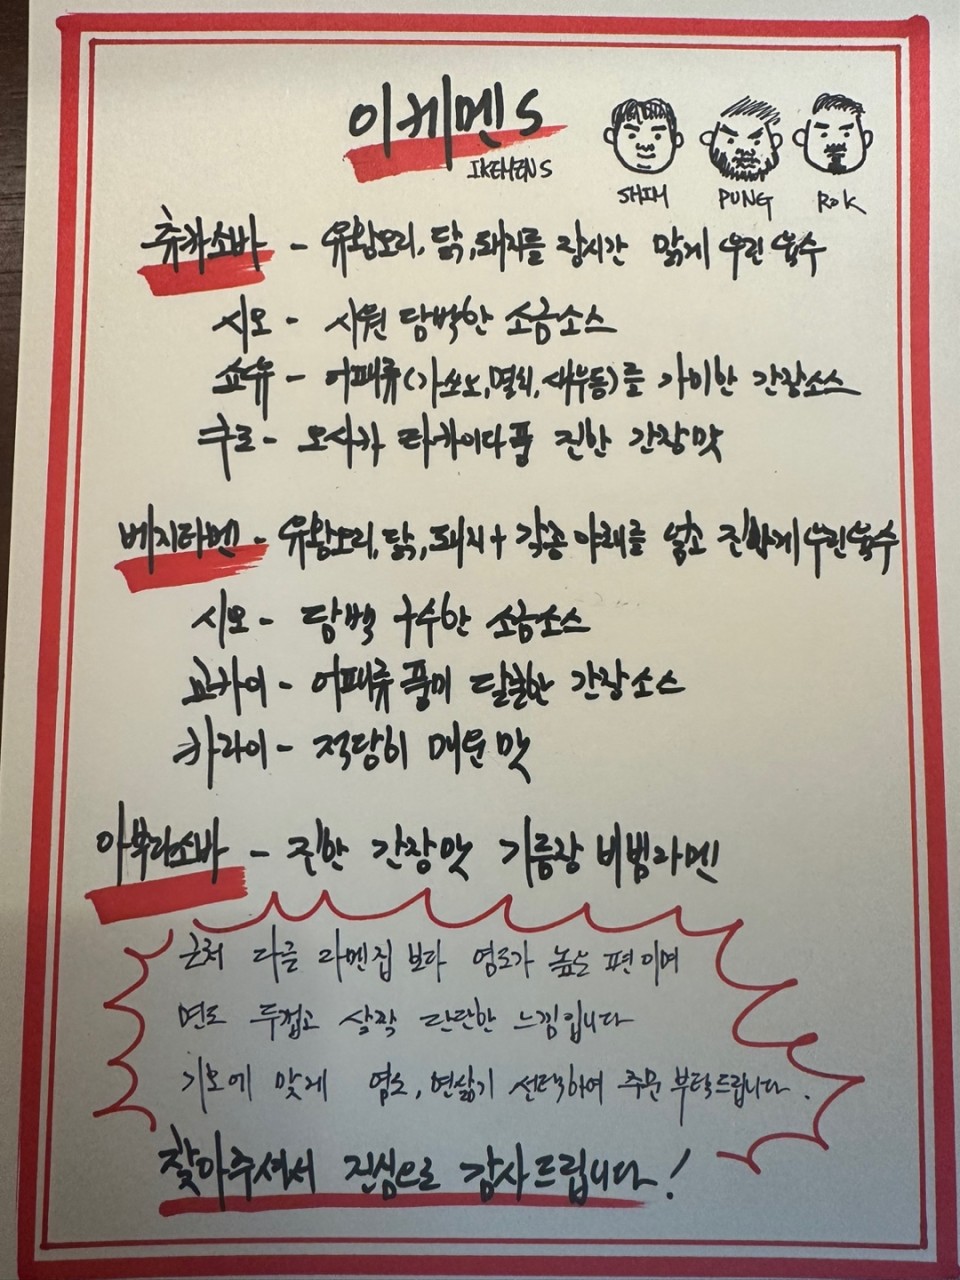 이케멘S
IKEMENS
SHIM PUNG ROK
츄카소바 - 유황오리, 닭, 돼지를 장시간 맑게 우린 육수
시오 - 시원 담백한 소금소스
쇼유 - 어패류(가쓰오, 멸치, 새우등)를 가미한 간장소스
쿠로 - 오사카 타카이다풍 진한 간장맛
베지타멘 - 유황오리, 닭, 돼지 + 각종야채를 넣고 진하게 우린육수
시오 - 담백 구수한 소금소스
교카이 - 어패류 풍미 달콤한 간장소스
카라이 - 적당히 매운맛
아부라소바 - 진한 간장맛 기름장 비빔라멘
근처 다른 라멘집 보다 염도가 높은 편이며
면도 두껍고 살짝 단단한 느낌입니다
기호에 맞게 염도, 면삶기 선택하여 주문 부탁드립니다.
찾아주셔서 진심으로 감사드립니다!